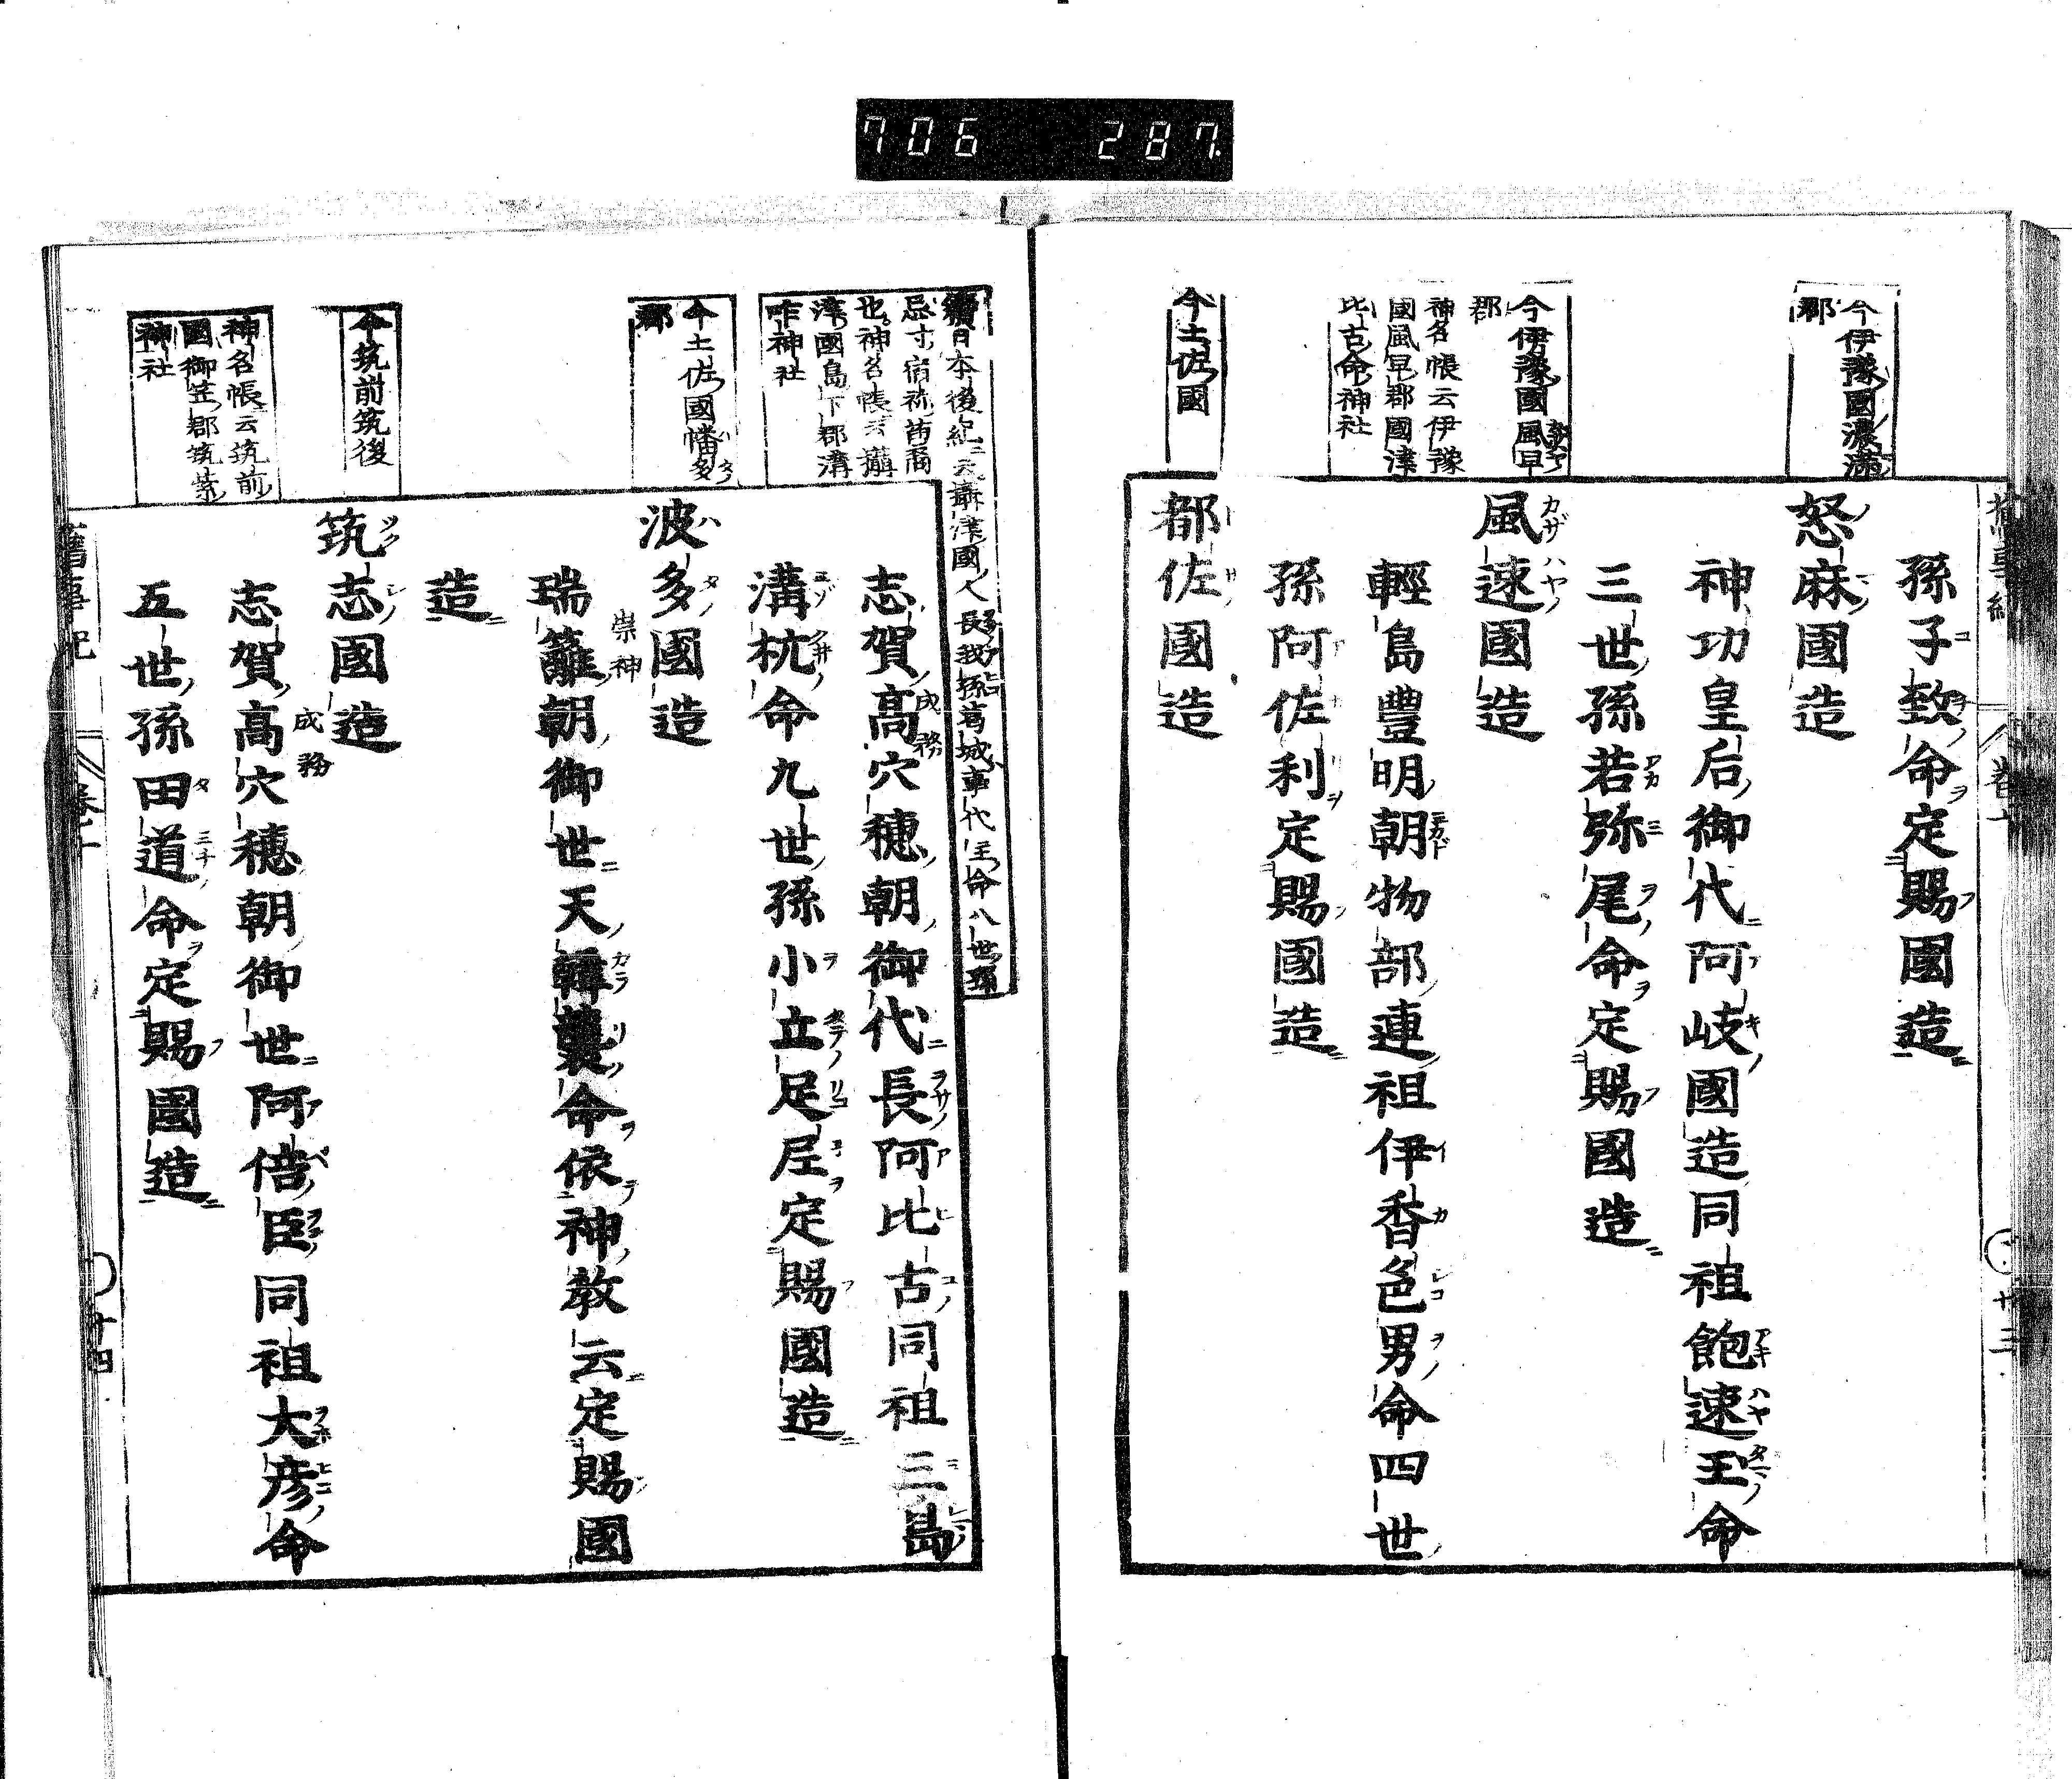 706 287
今伊豫國濃滿
郡
孫子致命定賜國造
怒麻國造
神功皇后御代阿岐國造同祖飽速玉命
三世孫若弥尾命定賜國造
今伊豫國風早
郡
神名帳云伊豫
國風早郡國津
比古命神社
風速國造
輕島豐明朝物部連祖伊香色男命四世
孫阿佐利定賜國造
今土佐國
都佐國造
續日本後紀云攝津國人長我孫葛城事代主命八世孫
忌寸宿祢苗裔
也神名帳云攝
津國島下郡溝
咋神社
志賀高穴穗朝御代長阿比古同祖三島
成務
溝杭命九世孫小立足尼定賜國造
今土佐國幡多
郡
波多國造
瑞籬朝御世天韓襲命依神敎云定賜國
崇神
造
今筑前筑後
筑志國造
志賀高穴穗朝御世阿倍臣同祖大彦命
成務
神名帳云筑前
國御笠郡筑紫
神社
五世孫田道命定賜國造
舊事紀
卷十
十四